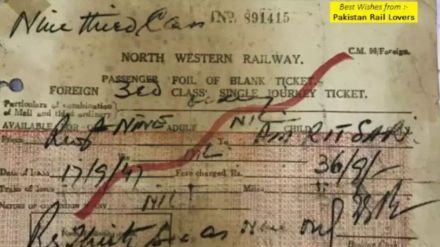 Best Wishes from :-
Pakistan Rail Lovers
Nine third Class
No. 891415
NORTH WESTERN RAILWAY.
C.M. 90/Foreign.
PASSENGER FOIL OF BLANK TICKET.
FOREIGN 3rd CLASS SINGLE JOURNEY TICKET.
Particulars of combination
of Mail and third ordinary
AVAILABLE FOR NINE ADULT NIL CHILD
From To AMRITSAR
NIL
Date of Issue 17/9/47 Fare charged Rs. 36/9/-
Train of Miles
NATURE OF NIL
Rs Thirty Six as Nine only